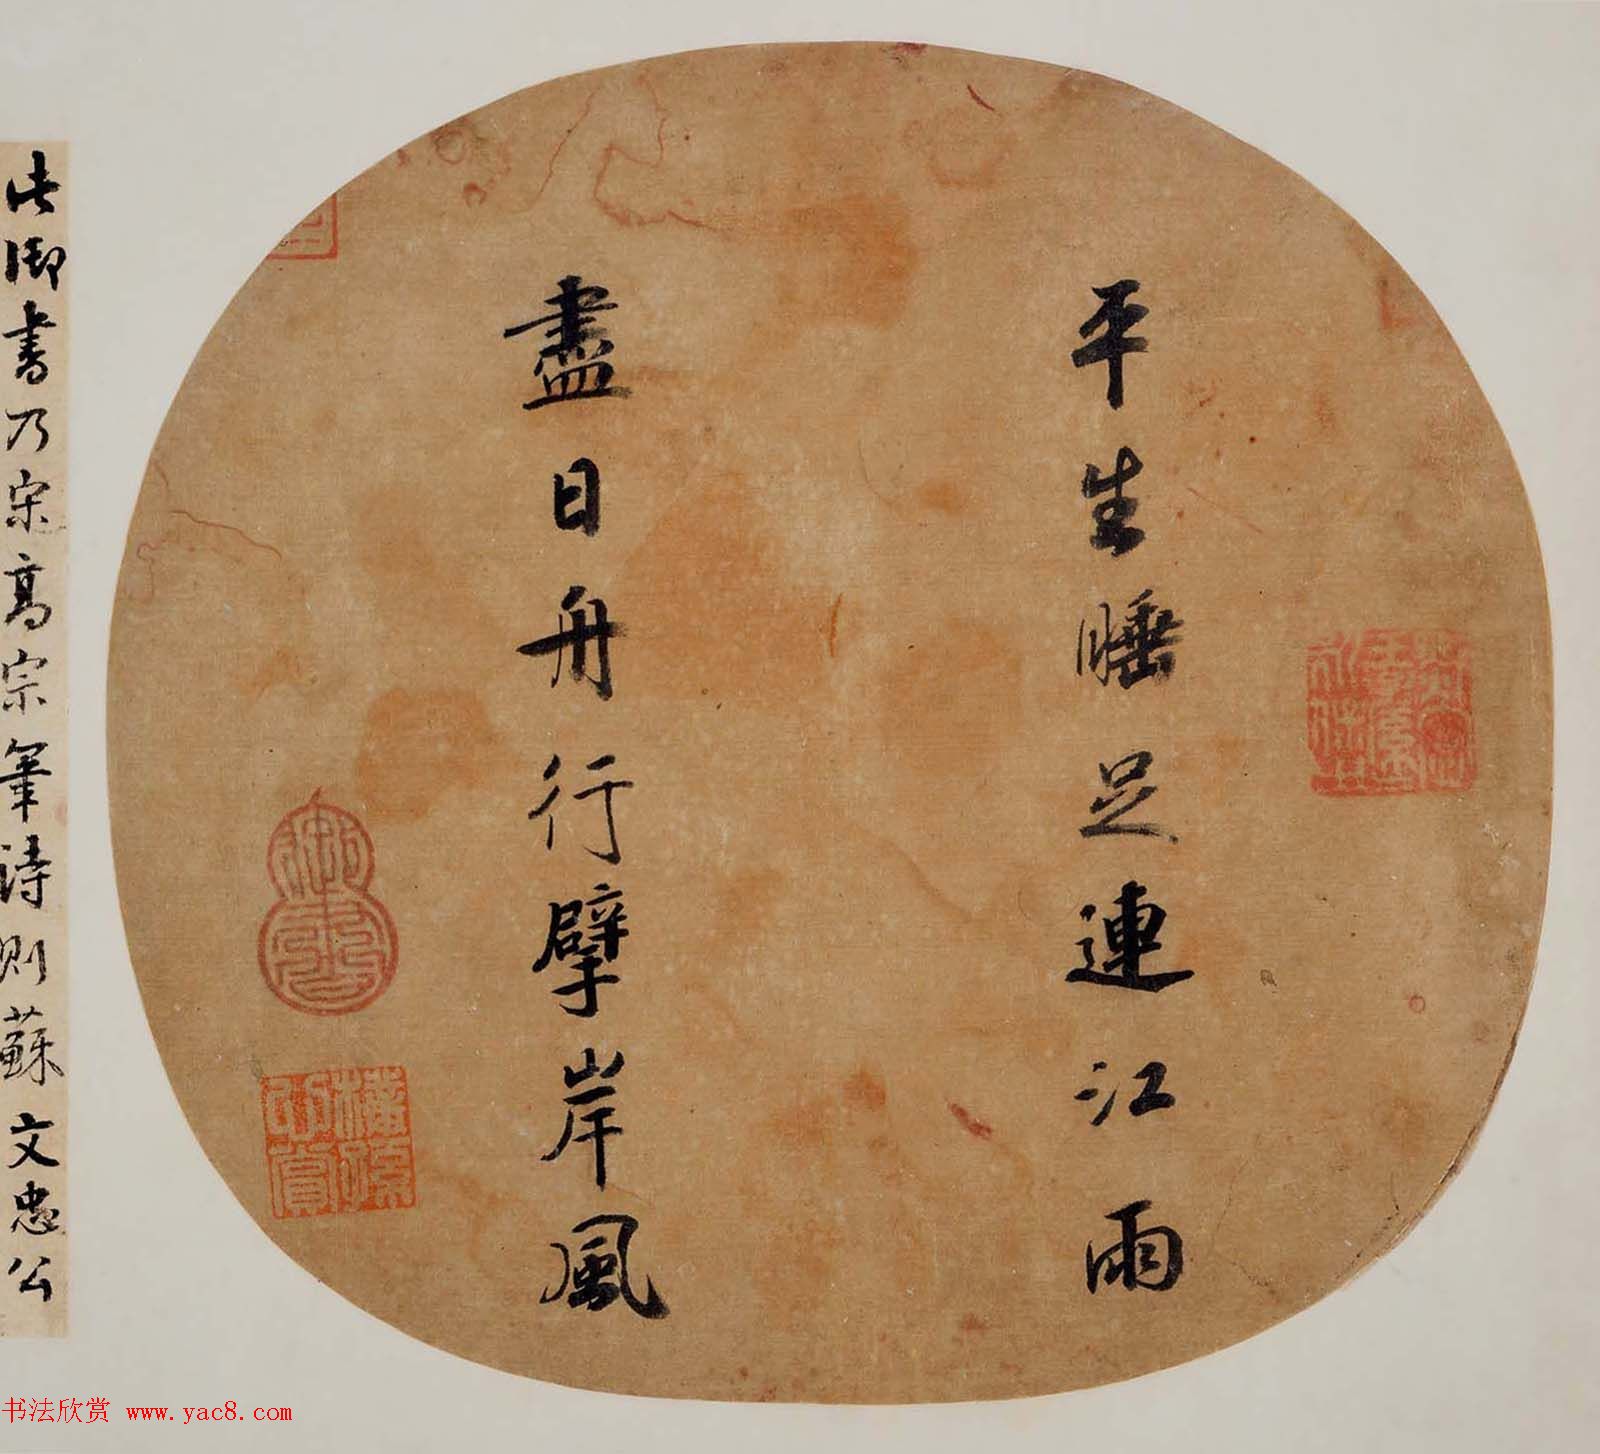 平生睡足連江雨
盡日舟行擘岸風
此御書乃宋高宗筆詩則蘇文忠公
书法欣赏 www.yac8.com